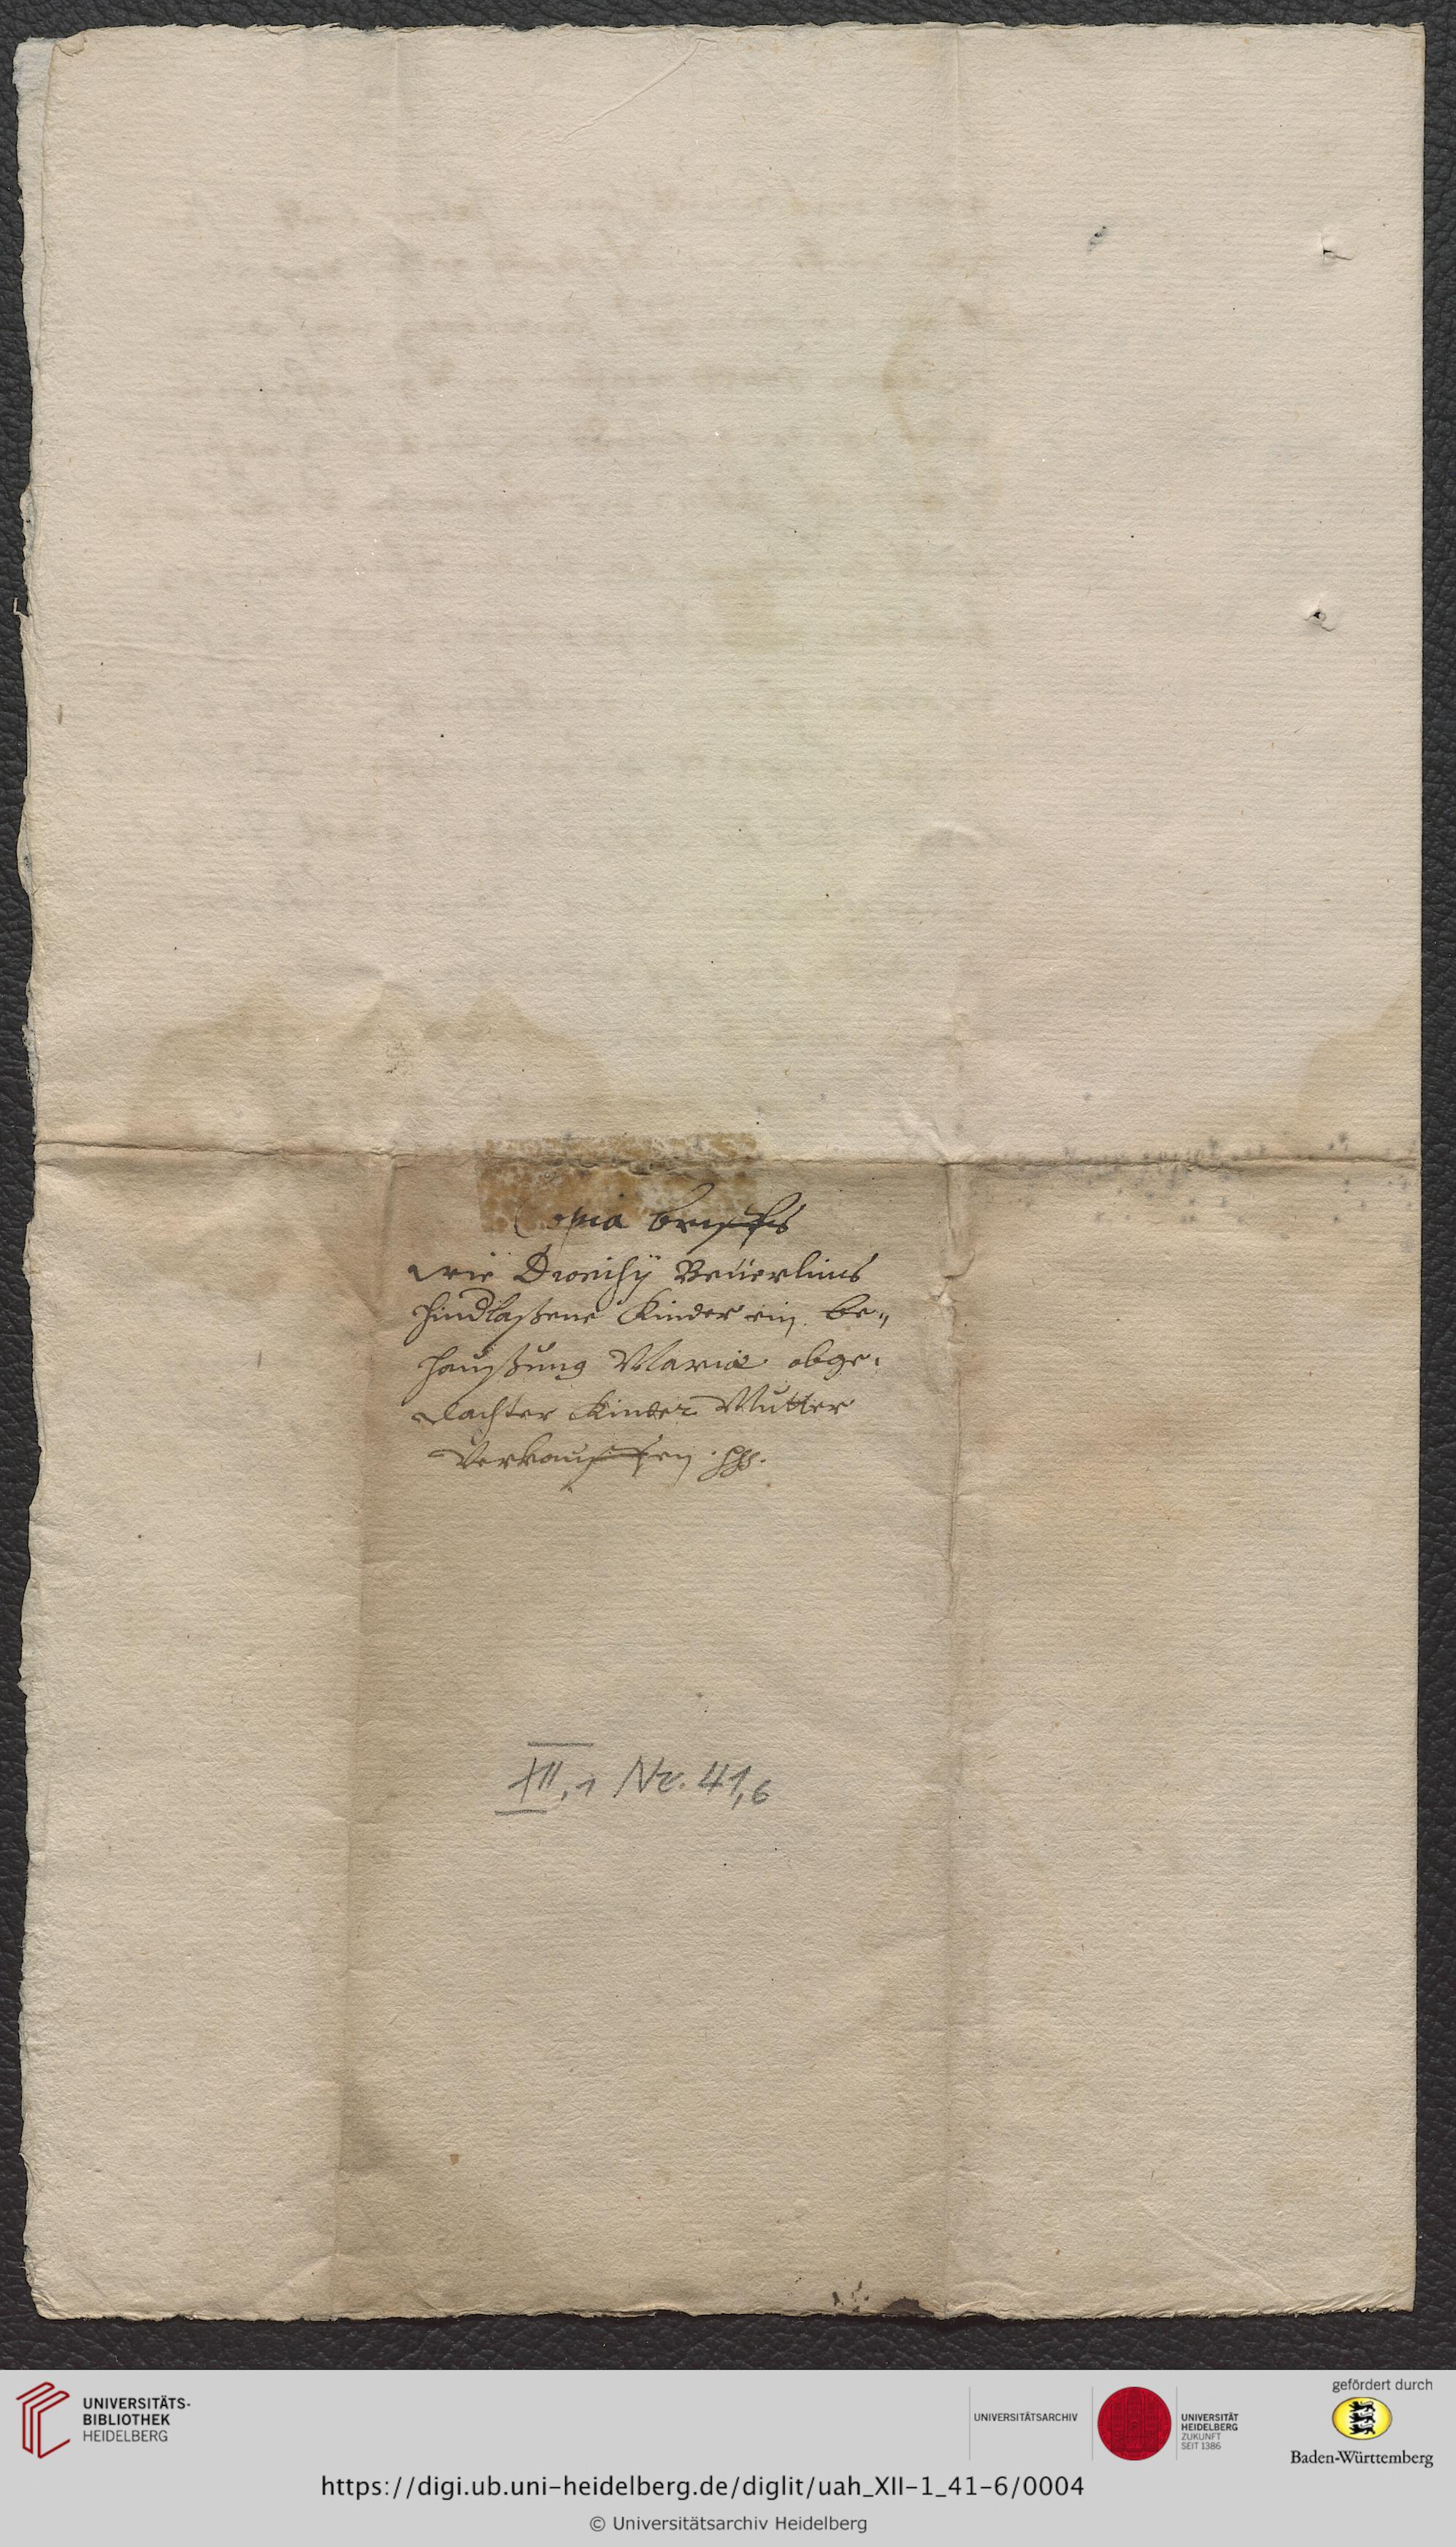 Copia brieffs
wie Dionisÿ Beüerlins
hindlaßene Kinder ein be„
haußung Mariæ obge„
dachter Kinder Mutter
Verkauffen
XII,1 Nr. 41,6
UNIVERSITÄTS-
BIBLIOTHEK
HEIDELBERG
UNIVERSITÄTSARCHIV
UNIVERSITÄT
HEIDELBERG
ZUKUNFT
SEIT 1386
gefördert durch
Baden-Württemberg
https://digi.ub.uni-heidelberg.de/diglit/uah_XII-1_41-6/0004
© Universitätsarchiv Heidelberg